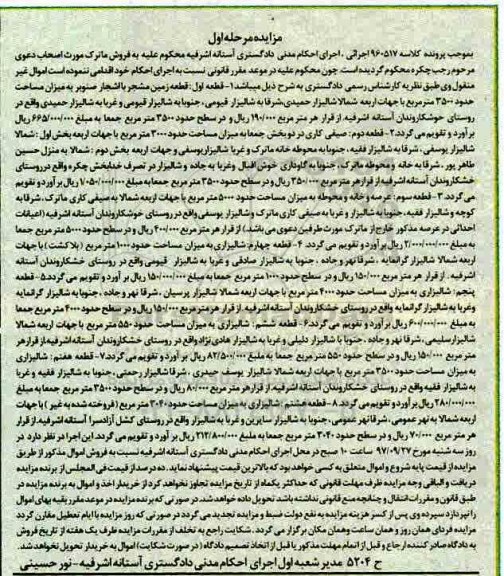 مزایده مرحله اول
بموجب پرونده کلاسه ۹۶۰۵۱۷ اجرائی ، اجرای احکام مدنی دادگستری آستانه اشرفیه محکوم علیه به فروش ماترک مورث اصحاب دعوی
مرحوم رجب چکره محکوم گردیده است. چون محکوم علیه در موعد مقرر قانونی نسبت به اجرای احکام خود اقدامی ننموده است اموال غیر
منقول وی طبق نظریه کارشناس رسمی دادگستری به شرح ذیل میباشد ۱- قطعه اول: قطعه زمین مشجر با اشجار صنوبر به میزان مساحت
حدود ۳۵۰۰ متر مربع با جهات اربعه شمالا شالیزار حمیدی، شرقا به شالیزار قیومی ، جنوبا به شالیزار قیومی و غربا به شالیزار حمیدی واقع در
روستای خوشکاروندان آستانه اشرفیه. از قرار هر متر مربع ۱۹۰/۰۰۰ ریال و در سطح حدود ۳۵۰۰ متر مربع جمعا به مبلغ ۶۶۵/۰۰۰/۰۰۰ ریال
برآورد و تقویم می گردد. ۲- قطعه دوم: صیفی کاری در دو بخش جمعا به میزان مساحت حدود ۳۰۰۰ متر مربع با جهات اربعه بخش اول: شمالا
شالیزار یوسفی ، شرقا به شالیزار فقیه ، جنوبا به محوطه خانه ماترک و غربا شالیزار یوسفی و جهات اربعه بخش دوم : شمالا به منزل حسین
طاهرپور ، شرقا به خانه و محوطه ماترک ، جنوبا به گاوداری خوش اقبال و غربا به جاده و شالیزار در تصرف خدابخش چکره واقع در روستای
خشکاروندان آستانه اشرفیه از قرار هر متر مربع ۳۵۰/۰۰۰ ریال و در سطح حدود ۳۵۰۰ متر مربع جمعا به مبلغ ۱/۰۵۰/۰۰۰/۰۰۰ ریال برآورد و تقویم
می گردد ۳- قطعه سوم: عرصه و خانه و محوطه به میزان مساحت حدود ۵۰۰۰ متر مربع با جهات اربعه شمالا به صیفی کاری ماترک ، شرقا به
کوچه و شالیزار فقیه، جنوبا به شالیزار و غربا به صیفی کاری ماترک و شالیزار یوسفی واقع در روستای خوشکاروندان آستانه اشرفیه (اعیانات
احداثی در عرصه مذکور خارج از ماترک مورث طرفین دعوی می باشد) از قرار هر متر مربع ۴۰۰/۰۰۰ ریال و در سطح حدود ۵۰۰۰ متر مربع جمعا
به مبلغ ۲/۰۰۰/۰۰۰/۰۰۰ ریال برآورد و تقویم می گردد. ۴- قطعه چهارم: شالیزاری به میزان مساحت حدود ۱۰۰۰ متر مربع ( بلاکشت ) با جهات
اربعه شمالا شالیزار گرانمایه ، شرقا نهر و جاده ، جنوبا به شالیزار صادقی و غربا به شالیزار قیومی واقع در روستای خشکاروندان آستانه
اشرفیه. از قرار هر متر مربع ۱۵۰/۰۰۰ ریال و در سطح حدود ۱۰۰۰ متر مربع جمعا به مبلغ ۱۵۰/۰۰۰/۰۰۰ ریال برآورد و تقویم می گردد. ۵- قطعه
پنجم: شالیزاری به میزان مساحت حدود ۴۰۰۰ متر مربع با جهات اربعه شمالا شالیزار پرسیان ، شرقا نهر و جاده ، جنوبا به شالیزار گرانمایه
و غربا به شالیزار گرانمایه واقع در روستای خشکاروندان آستانه اشرفیه. از قرار هر متر مربع ۱۵۰/۰۰۰ ریال و در سطح حدود ۴۰۰۰ متر مربع جمعا
به مبلغ ۶۰۰/۰۰۰/۰۰۰ ریال برآورد و تقویم می گردد. ۶- قطعه ششم: شالیزاری به میزان مساحت حدود ۵۵۰ متر مربع با جهات اربعه شمالا
شالیزار سلیمی ، شرقا نهر و جاده ، جنوبا با شالیزار دلیلی و غربا به شالیزار هادی نژاد واقع در روستای خشکاروندان آستانه اشرفیه از قرار هر
متر مربع ۱۵۰/۰۰۰ ریال و در سطح حدود ۵۵۰ متر مربع جمعا به مبلغ ۸۲/۵۰۰/۰۰۰ ریال برآورد و تقویم می گردد. ۷- قطعه هفتم: شالیزاری
به میزان مساحت حدود ۳۵۰۰ متر مربع با جهات اربعه شمالا شالیزار یوسف حیدری ، شرقا شالیزار رحمتی ، جنوبا به شالیزار فقیه و غربا
به شالیزار فقیه واقع در روستای خشکاروندان آستانه اشرفیه. از قرار هر متر مربع ۸۰/۰۰۰ ریال و در سطح حدود ۳۵۰۰ متر مربع جمعا به مبلغ
۲۸۰/۰۰۰/۰۰۰ ریال برآورد و تقویم می گردد. ۸- قطعه هشتم: شالیزاری به میزان مساحت حدود ۳۰۴۰ متر مربع ( فروخته شده به غیر ) با جهات
اربعه شمالا به نهر عمومی ، شرقا نهر عمومی ، جنوبا به شالیزار سایرین و غربا به شالیزار واقع در روستای کشل آزادسرا آستانه اشرفیه. از قرار
هر متر مربع ۷۰/۰۰۰ ریال و در سطح حدود ۳۰۴۰ متر مربع جمعا به مبلغ ۲۱۲/۸۰۰/۰۰۰ ریال برآورد و تقویم می گردد. این اجرا در نظر دارد در
روز سه شنبه مورخ ۹۷/۰۹/۲۷ ساعت ۱۰ صبح در محل اجرای احکام مدنی دادگستری آستانه اشرفیه نسبت به فروش اموال مذکور از طریق
مزایده از قیمت پایه شروع و اموال متعلق به کسی خواهد بود که بالاترین قیمت پیشنهاد نماید . ده درصد از قیمت فی المجلس از برنده مزایده
دریافت و الباقی وجه مزایده ظرف مهلت قانونی که حداکثر یکماه از تاریخ مزایده تجاوز نخواهد کرد از خریدار اخذ و اموال به برنده مزایده در
طبق قانون و مقررات انتقال و چنانچه منع قانونی نداشته باشد تحویل داده خواهد شد. در صورتی که برنده مزایده در موعد مقرر بقیه بهای اموال
را نپردازد سپرده وی پس از کسر هزینه مزایده به نفع دولت ضبط و مزایده تجدید می گردد در صورتی که روز مزایده با ایام تعطیل مقارن گردد
مزایده فردای همان روز و همان ساعت و همان مکان برگزار می گردد . شکایت راجع به تخلف از مقررات مزایده ظرف یک هفته از تاریخ فروش
به دادگاه صادر کننده ارجاع و قبل از اتمام مهلت مذکور یا قبل از اتخاذ تصمیم دادگاه ( در صورت شکایت) اموال به خریدار تحویل نخواهد شد.
ح ۵۲۰۴ مدیر شعبه اول اجرای احکام مدنی دادگستری آستانه اشرفیه - نور حسینی